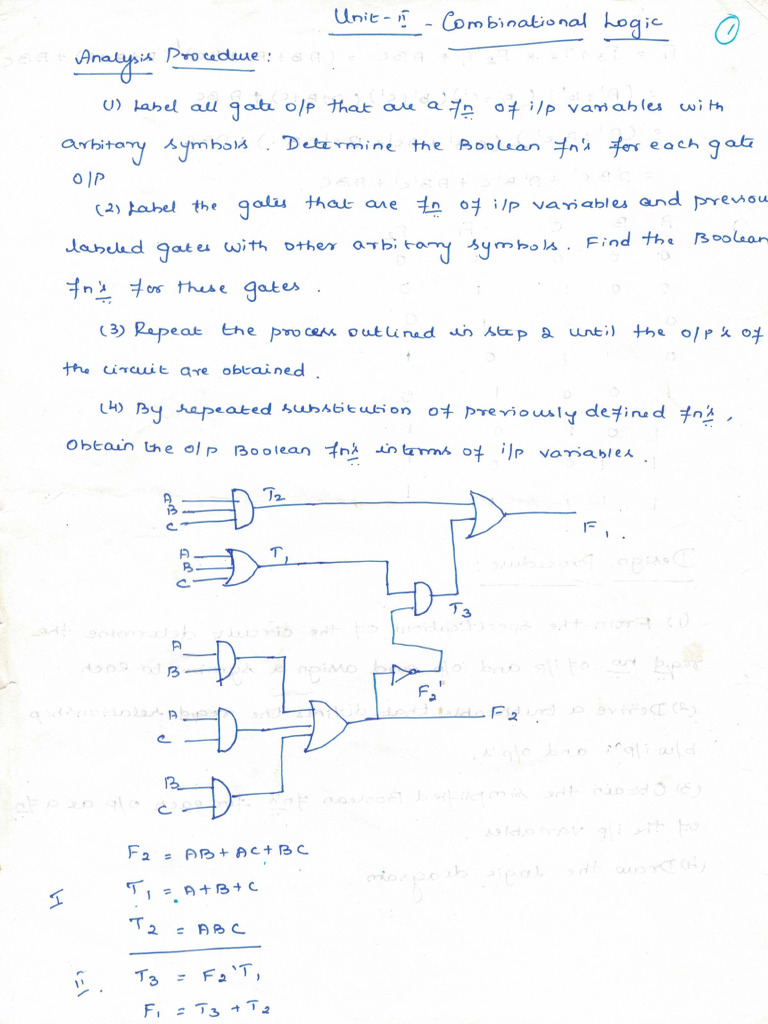 Unit-II - Combinational Logic
1
Analysis Procedure:
(1) Label all gate o/p that are a fn of i/p variables with
arbitary symbols. Determine the Boolean fn's for each gate
O/P
(2) Label the gates that are fn of i/p variables and previou
labeled gates with other arbitary symbols. Find the Boolean
fn's for these gates.
(3) Repeat the process outlined in step 2 until the o/p's of
the circuit are obtained.
(4) By repeated substitution of previously defined fn's,
Obtain the o/p Boolean fn's interms of i/p variables.
A
B
C
T2
F1.
A
B
C
T1
T3
A
B
F2'
A
C
F2.
B
C
F2 = AB+AC+BC
I T1 = A+B+C
T2 = ABC
ii. T3 = F2'T1
F1 = T3 + T2